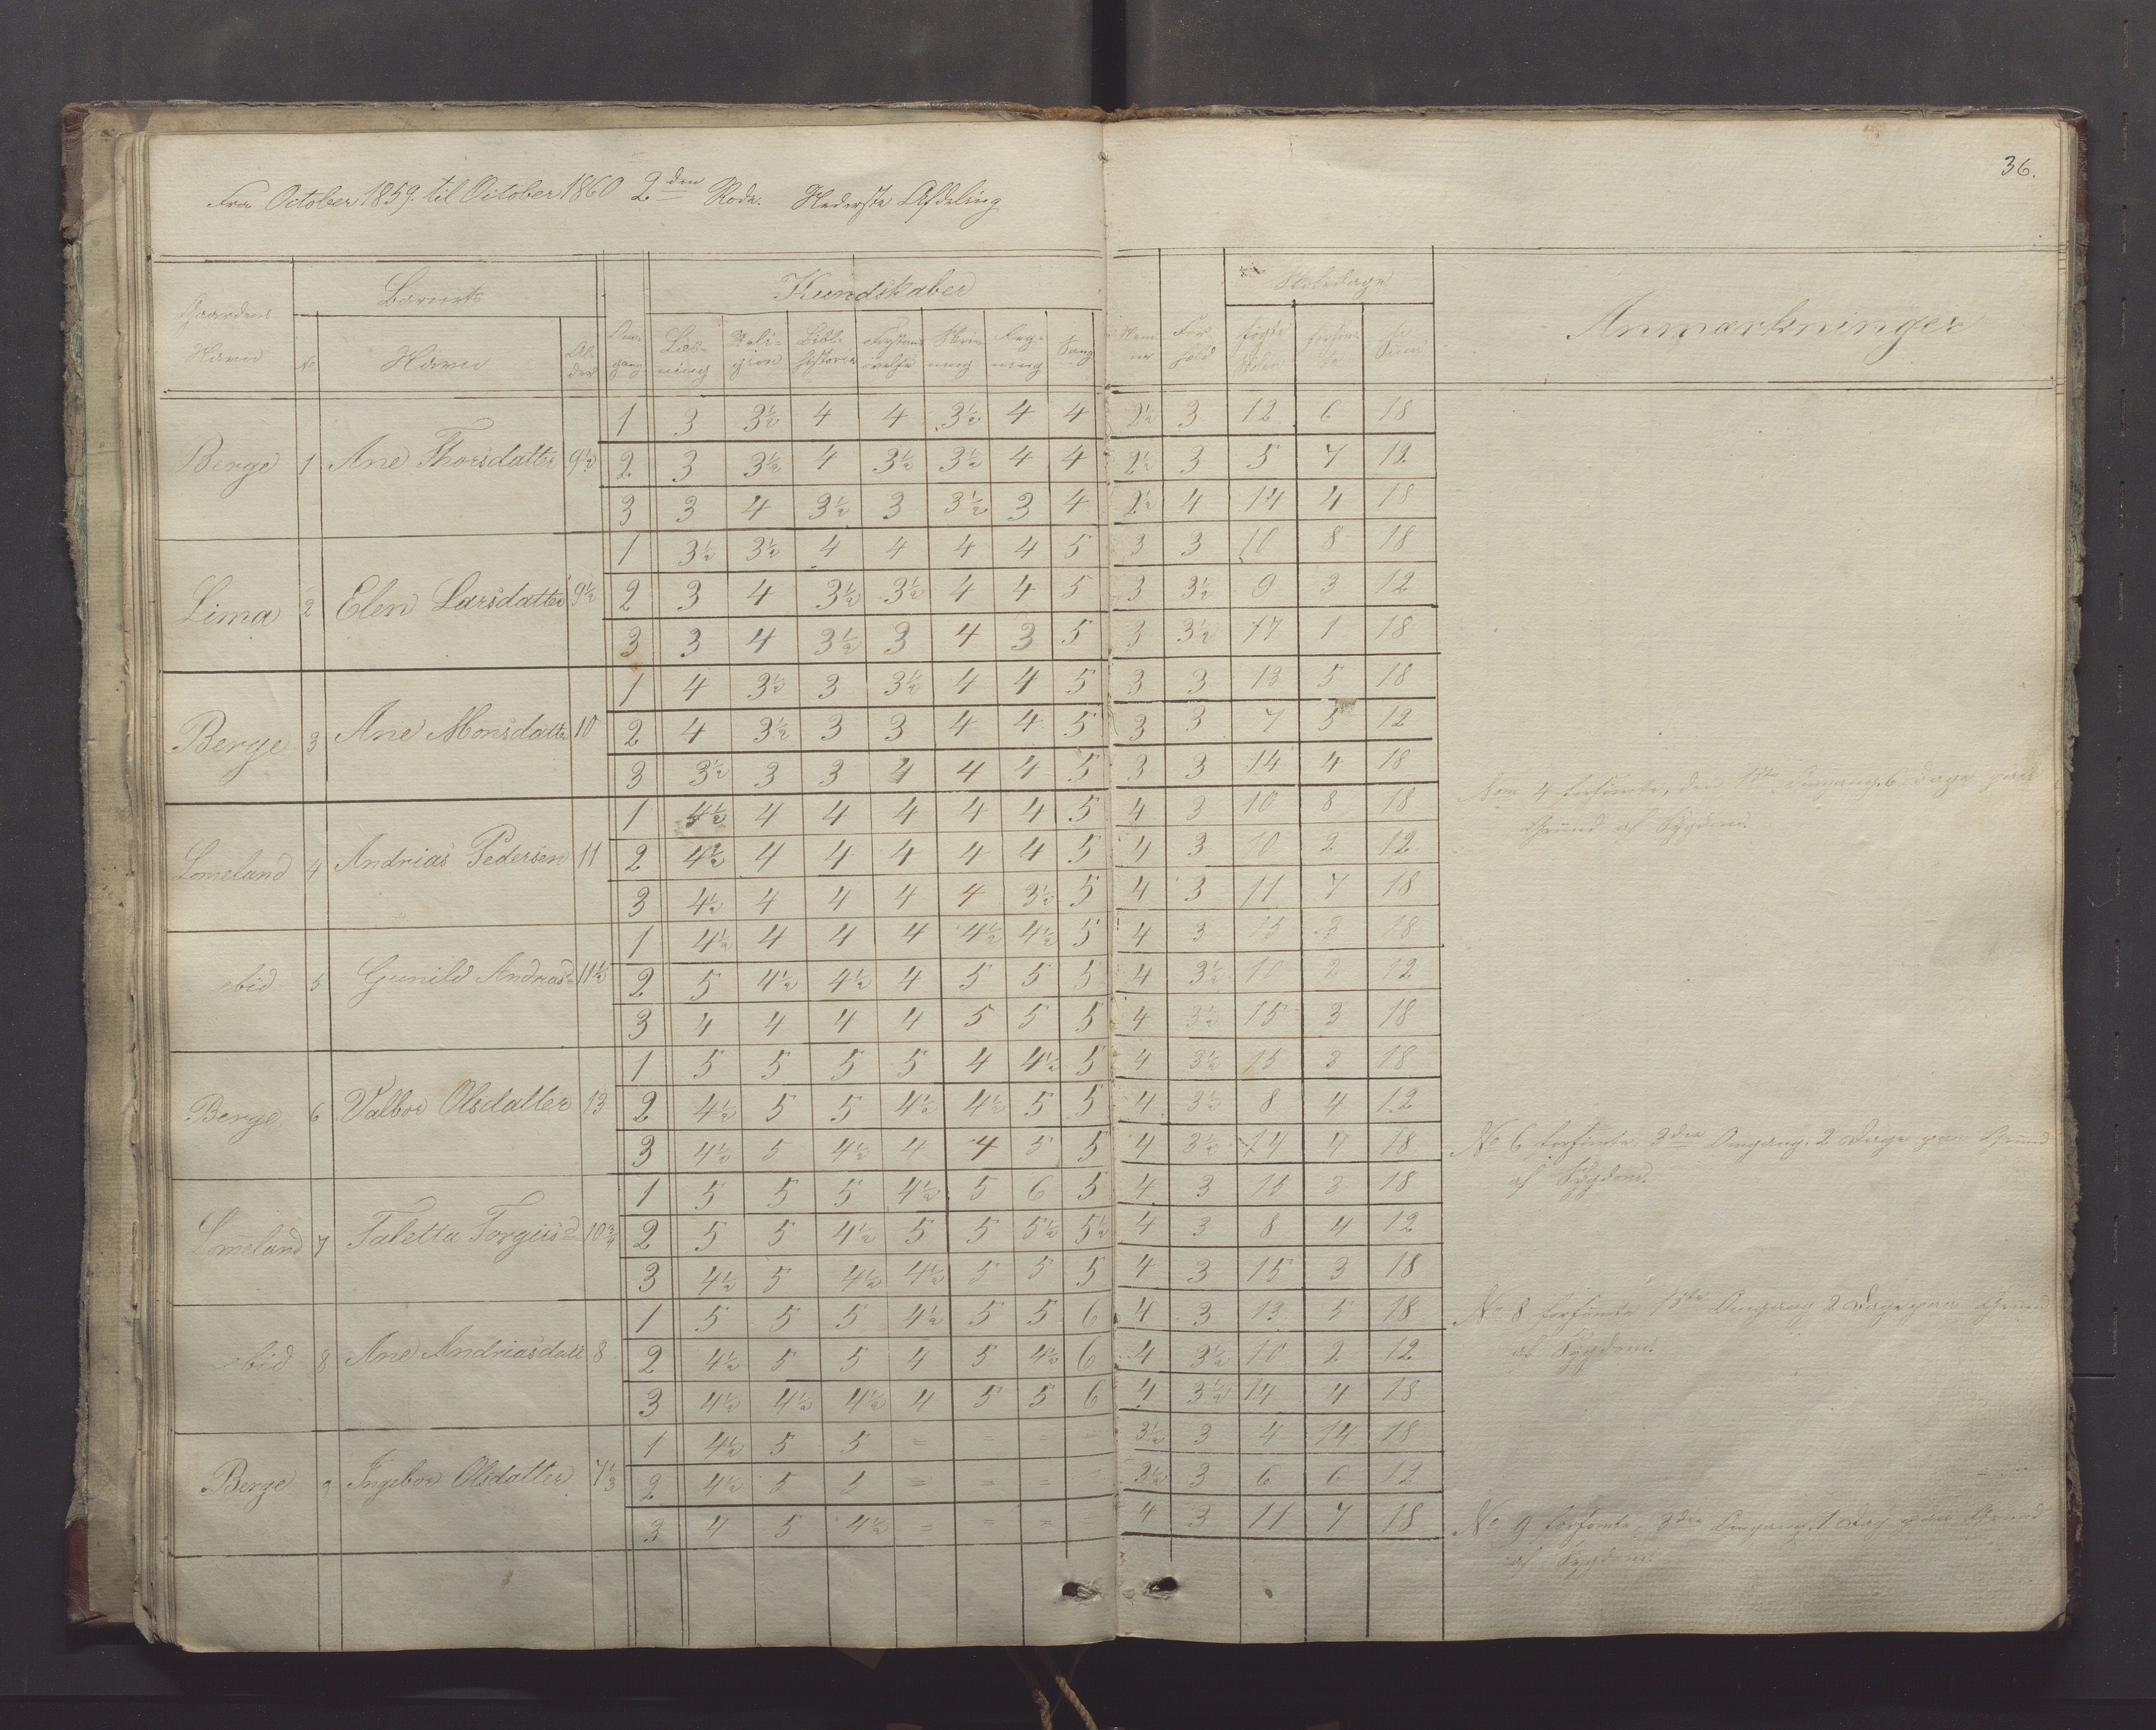 36.
Fra October 1859. til October 1860 2den Rode. Nederste Afdeling
Gaardens Navn | Barnets | Kundskaber | Skoledage | Anmærkninger
No | Navn | Alder | Omgang | Læsning | Religion | Bibl. historie | Skrivning | Regning | Sang | Nemme | Forhold | søgte Skolen | forsømte | Sum
Berge 1 Ane Thorsdatter 9½ | 1 | 3 | 3½ | 4 | 4 | 3½ | 4 | 4 | 2½ | 3 | 12 | 6 | 18
2 | 3 | 3½ | 4 | 3½ | 3½ | 4 | 4 | 2½ | 3 | 5 | 7 | 12
3 | 3 | 4 | 3½ | 3 | 3½ | 3 | 4 | 2½ | 4 | 14 | 4 | 18
Lima 2 Elen Larsdatter 9½ | 1 | 3½ | 3½ | 4 | 4 | 4 | 4 | 5 | 3 | 3 | 10 | 8 | 18
2 | 3 | 4 | 3½ | 3½ | 4 | 4 | 5 | 3 | 3½ | 9 | 3 | 12
3 | 3 | 4 | 3½ | 3 | 4 | 3 | 5 | 3 | 3½ | 17 | 1 | 18
Berge 3 Ane Monsdatte 10 | 1 | 4 | 3½ | 3 | 3½ | 4 | 4 | 5 | 3 | 3 | 13 | 5 | 18
2 | 4 | 3½ | 3 | 3 | 4 | 4 | 5 | 3 | 3 | 7 | 5 | 12
3 | 3½ | 3 | 3 | 4 | 4 | 4 | 5 | 3 | 3 | 14 | 4 | 18
Lomeland 4 Andrias Pedersen 11 | 1 | 4½ | 4 | 4 | 4 | 4 | 4 | 5 | 4 | 3 | 10 | 8 | 18 | 4 forsømte, den 1ste Omgang, 6 Dage paa
Grund af Sygdom.
2 | 4½ | 4 | 4 | 4 | 4 | 4 | 5 | 4 | 3 | 10 | 2 | 12
3 | 4½ | 4 | 4 | 4 | 4 | 3½ | 5 | 4 | 3 | 11 | 7 | 18
ibid 5 Gunild Andriasd 11½ | 1 | 4½ | 4 | 4 | 4 | 4½ | 4½ | 5 | 4 | 3 | 15 | 3 | 18
2 | 5 | 4½ | 4½ | 4 | 5 | 5 | 5 | 4 | 3½ | 10 | 2 | 12
3 | 4 | 4 | 4 | 4 | 5 | 5 | 5 | 4 | 3½ | 15 | 3 | 18
Berge 6 Valbor Olsdatter 13 | 1 | 5 | 5 | 5 | 5 | 4 | 4½ | 5 | 4 | 3½ | 15 | 3 | 18
2 | 4½ | 5 | 5 | 4½ | 4½ | 5 | 5 | 4 | 3½ | 8 | 4 | 12
3 | 4½ | 5 | 4½ | 4 | 4 | 5 | 5 | 4 | 3½ | 14 | 4 | 18 | No 6 forsømte 3die Omgang, 2 Dage paa Grund
af Sygdom.
Lomeland 7 Taletta Torgiisd 10¾ | 1 | 5 | 5 | 5 | 4½ | 5 | 6 | 5 | 4 | 3 | 15 | 3 | 18
2 | 5 | 5 | 4½ | 5 | 5 | 5½ | 5½ | 4 | 3 | 8 | 4 | 12
3 | 4½ | 5 | 4½ | 4½ | 5 | 5 | 5 | 4 | 3 | 15 | 3 | 18
ibid 8 Ane Andriasdatt 8 | 1 | 5 | 5 | 5 | 4½ | 5 | 5 | 6 | 4 | 3 | 13 | 5 | 18 | No 8 forsømte 1ste Omgang 2 Dage paa Grund
af Sygdom.
2 | 4½ | 5 | 5 | 4 | 5 | 4½ | 6 | 4 | 3½ | 10 | 2 | 12
3 | 4½ | 4½ | 4½ | 4 | 5 | 5 | 6 | 4 | 3½ | 14 | 4 | 18
Berge 9 Ingebor Olsdatter 7⅓ | 1 | 4½ | 5 | 5 | = | = | = | = | 3½ | 3 | 4 | 14 | 18
2 | 4½ | 5 | 5 | = | = | = | = | 3½ | 3 | 6 | 6 | 12
3 | 4 | 5 | 4½ | = | = | = | 4 | 3 | 11 | 7 | 18 | No 9 forsømte, 3die Omgang, 1 Dag paa Grund
af Sygdom